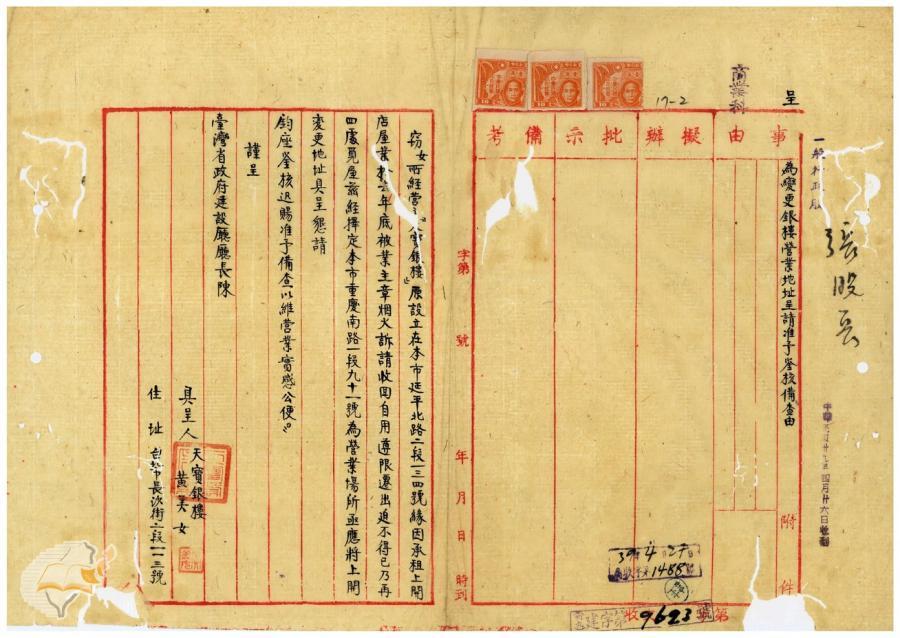 呈
商業科
17-2
事由
擬辦
批示
備考
為變更銀樓營業地址呈請准予鑒核備查由
附件
張股長
中華民國卅九年四月廿六日發
39 4 27
1488
建字第
收9623號
第
字第　號　年　月　日　時到
竊女所經營之天寶銀樓原設立在本市延平北路二段一三四號緣因承租上開
店屋業於去年底被業主章烟火訴請收回自用遵限遷出迫不得已乃再
四處覓屋茲經擇定本市重慶南路一段九十一號為營業場所亟應將上開
變更地址具呈懇請
鈞座鑒核迅賜准予備查以維營業實感公便
謹呈
臺灣省政府建設廳廳長陳
具呈人　天寶銀樓
黃美女
住址　台北市長沙街二段一一三號